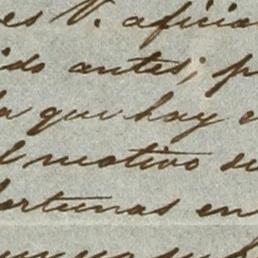 es V. aficio
ido antes; p
a que hay e
l motivo su
fortunas en